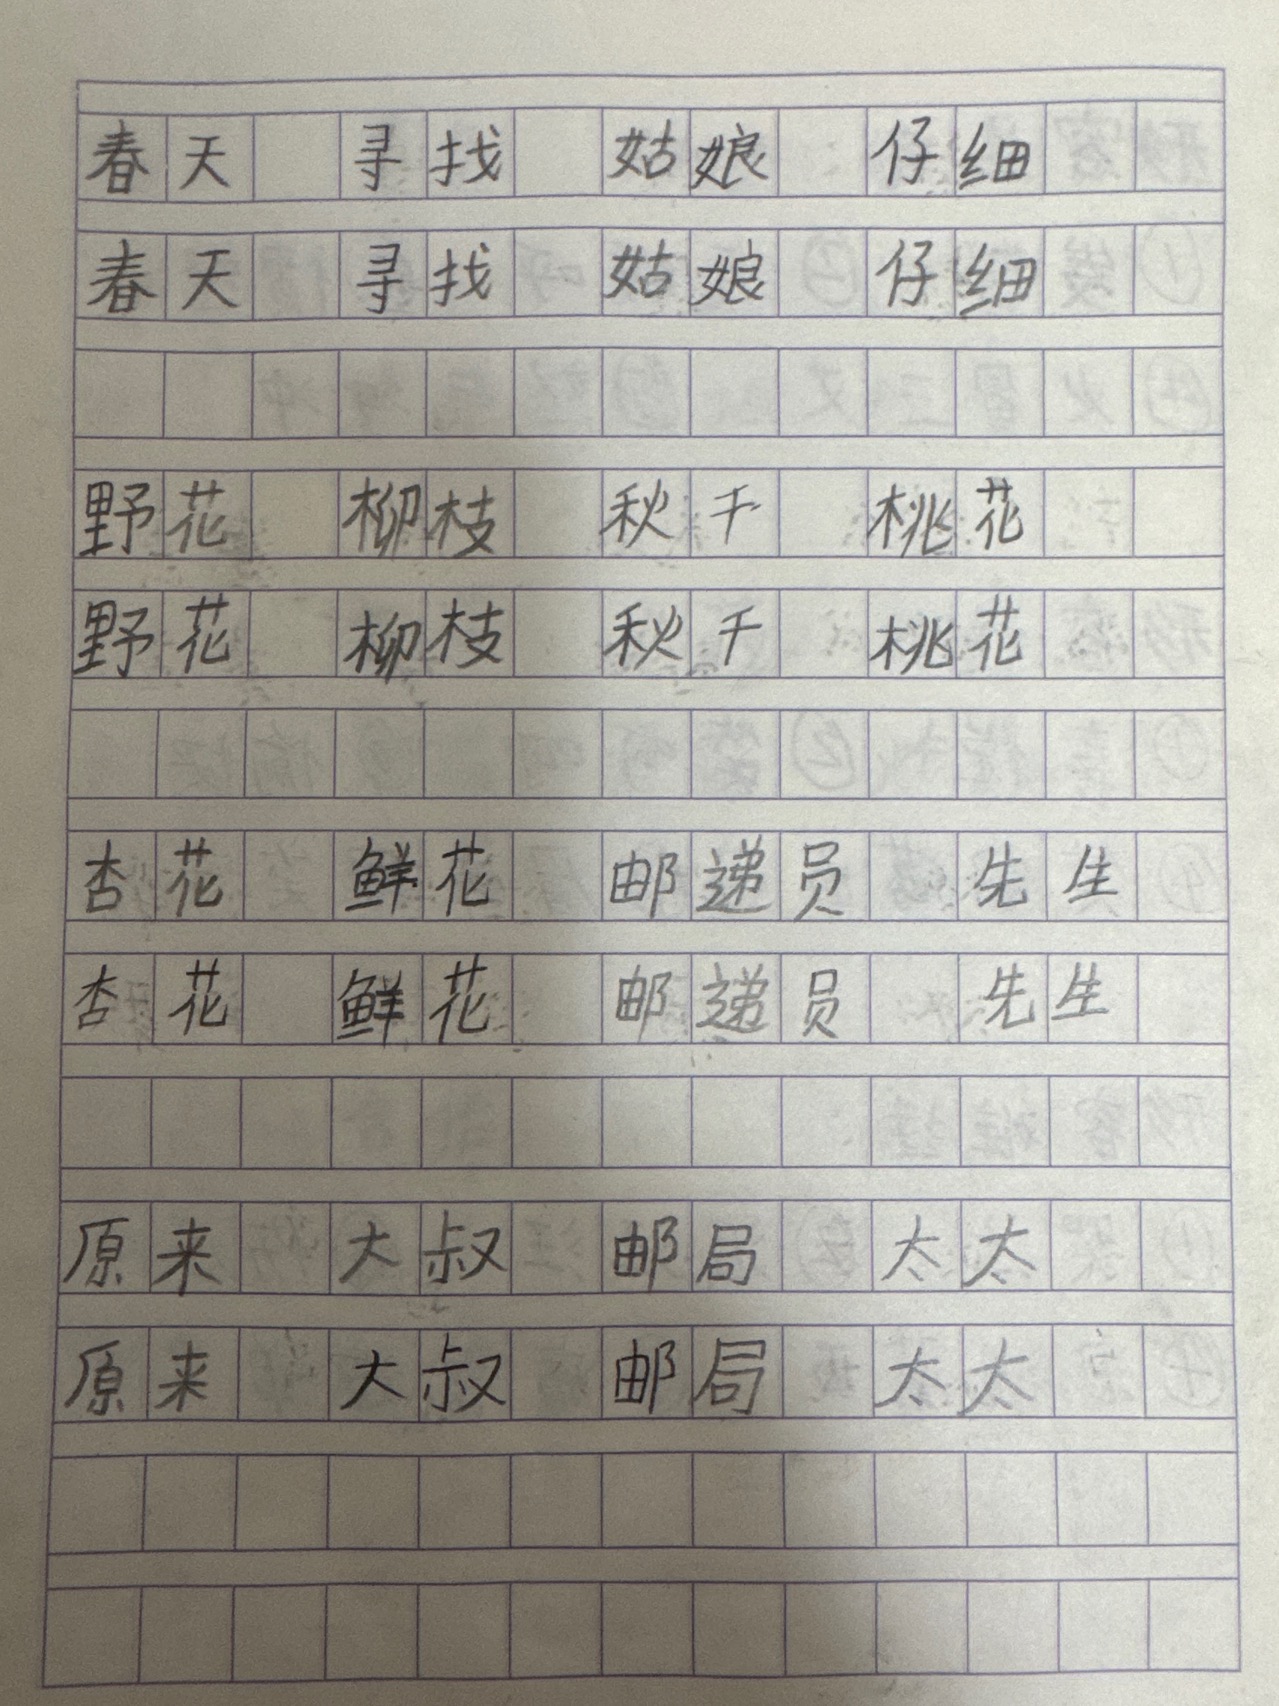 春天 寻找 姑娘 仔细
春天 寻找 姑娘 仔细
野花 柳枝 秋千 桃花
野花 柳枝 秋千 桃花
杏花 鲜花 邮递员 先生
杏花 鲜花 邮递员 先生
原来 大叔 邮局 太太
原来 大叔 邮局 太太